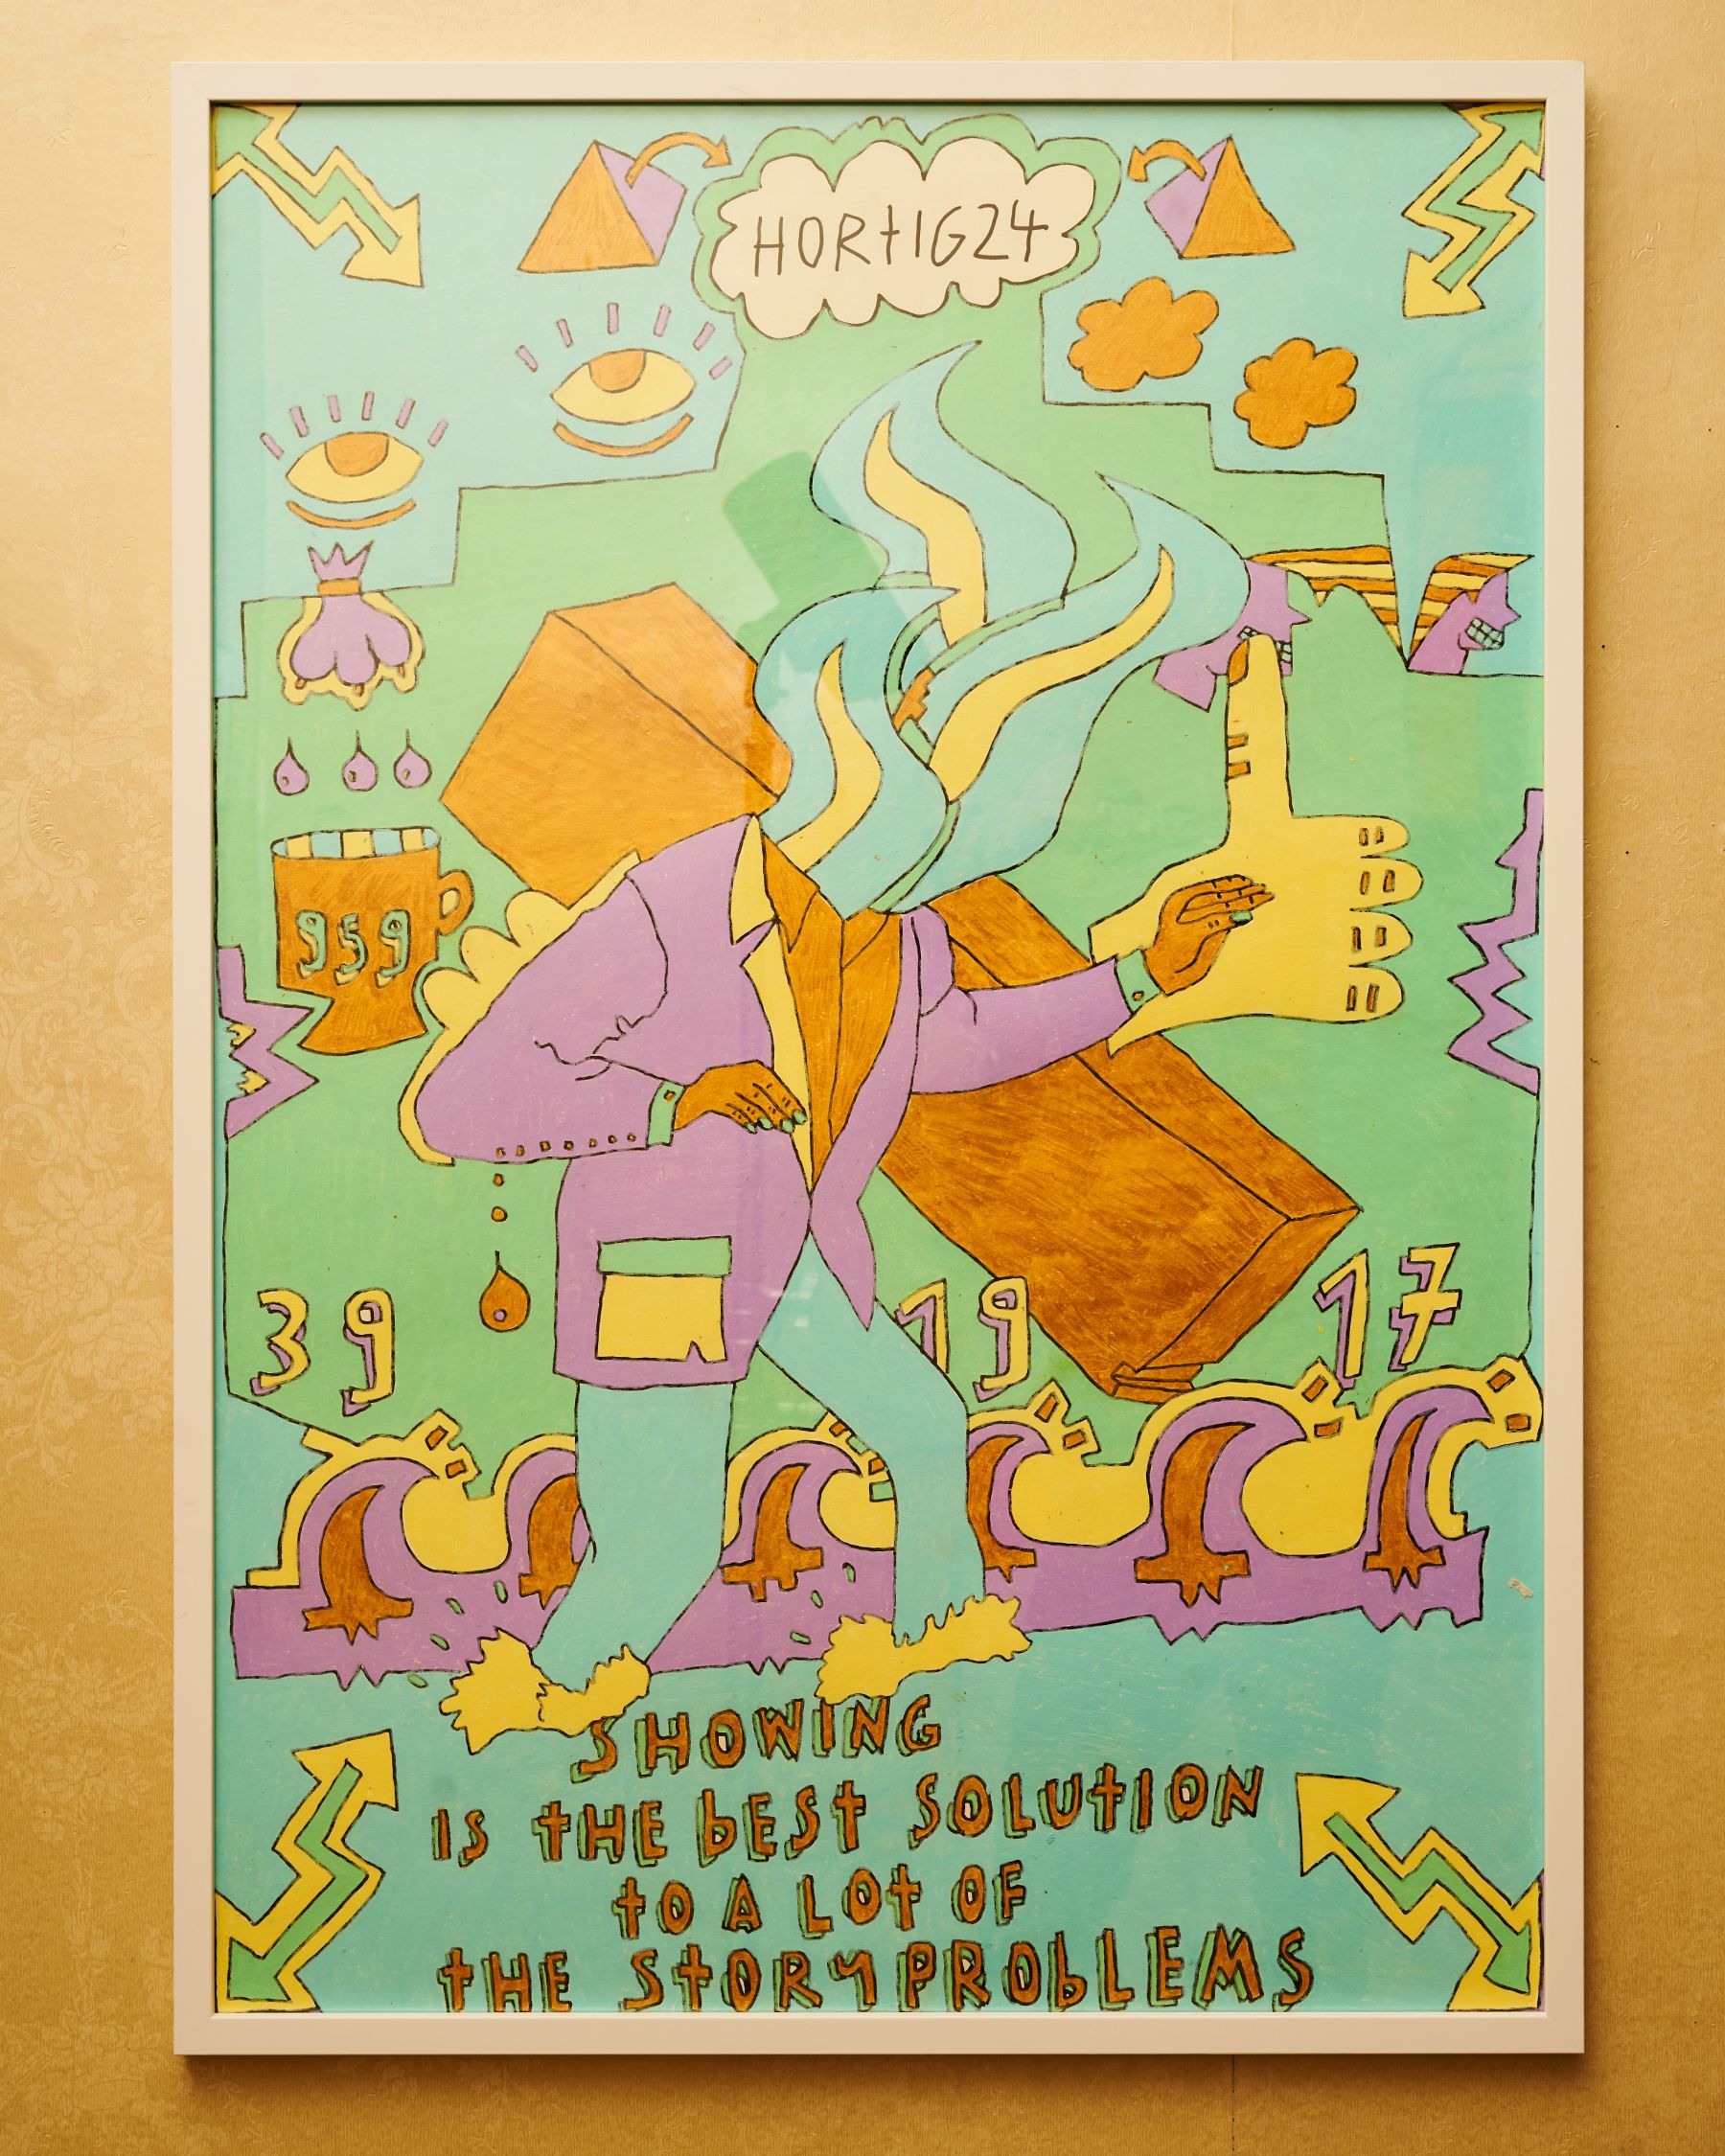 HORtIG24
959
39 19 17
SHOWING
IS tHE bESt SOLUtION
tO A LOt OF
tHE StORYPRObLEMS